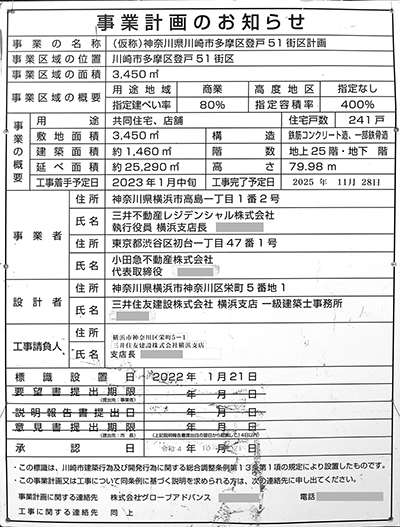 事業計画のお知らせ
事業の名称 (仮称)神奈川県川崎市多摩区登戸51街区計画
事業区域の位置 川崎市多摩区登戸51街区
事業区域の面積 3,450㎡
事業区域の概要 用途地域 商業 高度地区 指定なし
指定建ぺい率 80% 指定容積率 400%
事業の概要
用途 共同住宅、店舗 住宅戸数 241戸
敷地面積 3,450㎡ 構造 鉄筋コンクリート造、一部鉄骨造
建築面積 約1,460㎡ 階数 地上25階・地下 階
延べ面積 約25,290㎡ 高さ 79.98m
工事着手予定日 2023年1月中旬 工事完了予定日 2025年 11月 28日
事業者
住所 神奈川県横浜市高島一丁目1番2号
氏名 三井不動産レジデンシャル株式会社
執行役員 横浜支店長
住所 東京都渋谷区初台一丁目47番1号
氏名 小田急不動産株式会社
代表取締役
設計者
住所 神奈川県横浜市神奈川区栄町5番地1
氏名 三井住友建設株式会社 横浜支店 一級建築士事務所
工事請負人
住所 横浜市神奈川区栄町5-1
三井住友建設株式会社横浜支店
氏名 支店長
標識設置日 2022年 1月21日
要望書提出期限 年 月 日
(提出先:事業者)
説明報告書提出日 年 月 日
意見書提出期限 年 月 日
(提出先:市長) (上記説明報告書提出日の翌日から起算して14日以内)
承認日 令和4年 10月 21日
・この標識は、川崎市建築行為及び開発行為に関する総合調整条例第13条第1項の規定により設置したものです。
・この事業計画又は工事について同条例に基づく説明を求められる方は、次の連絡先に申し出ください。
事業計画に関する連絡先 株式会社グローブアドバンス 電話
工事に関する連絡先 同上